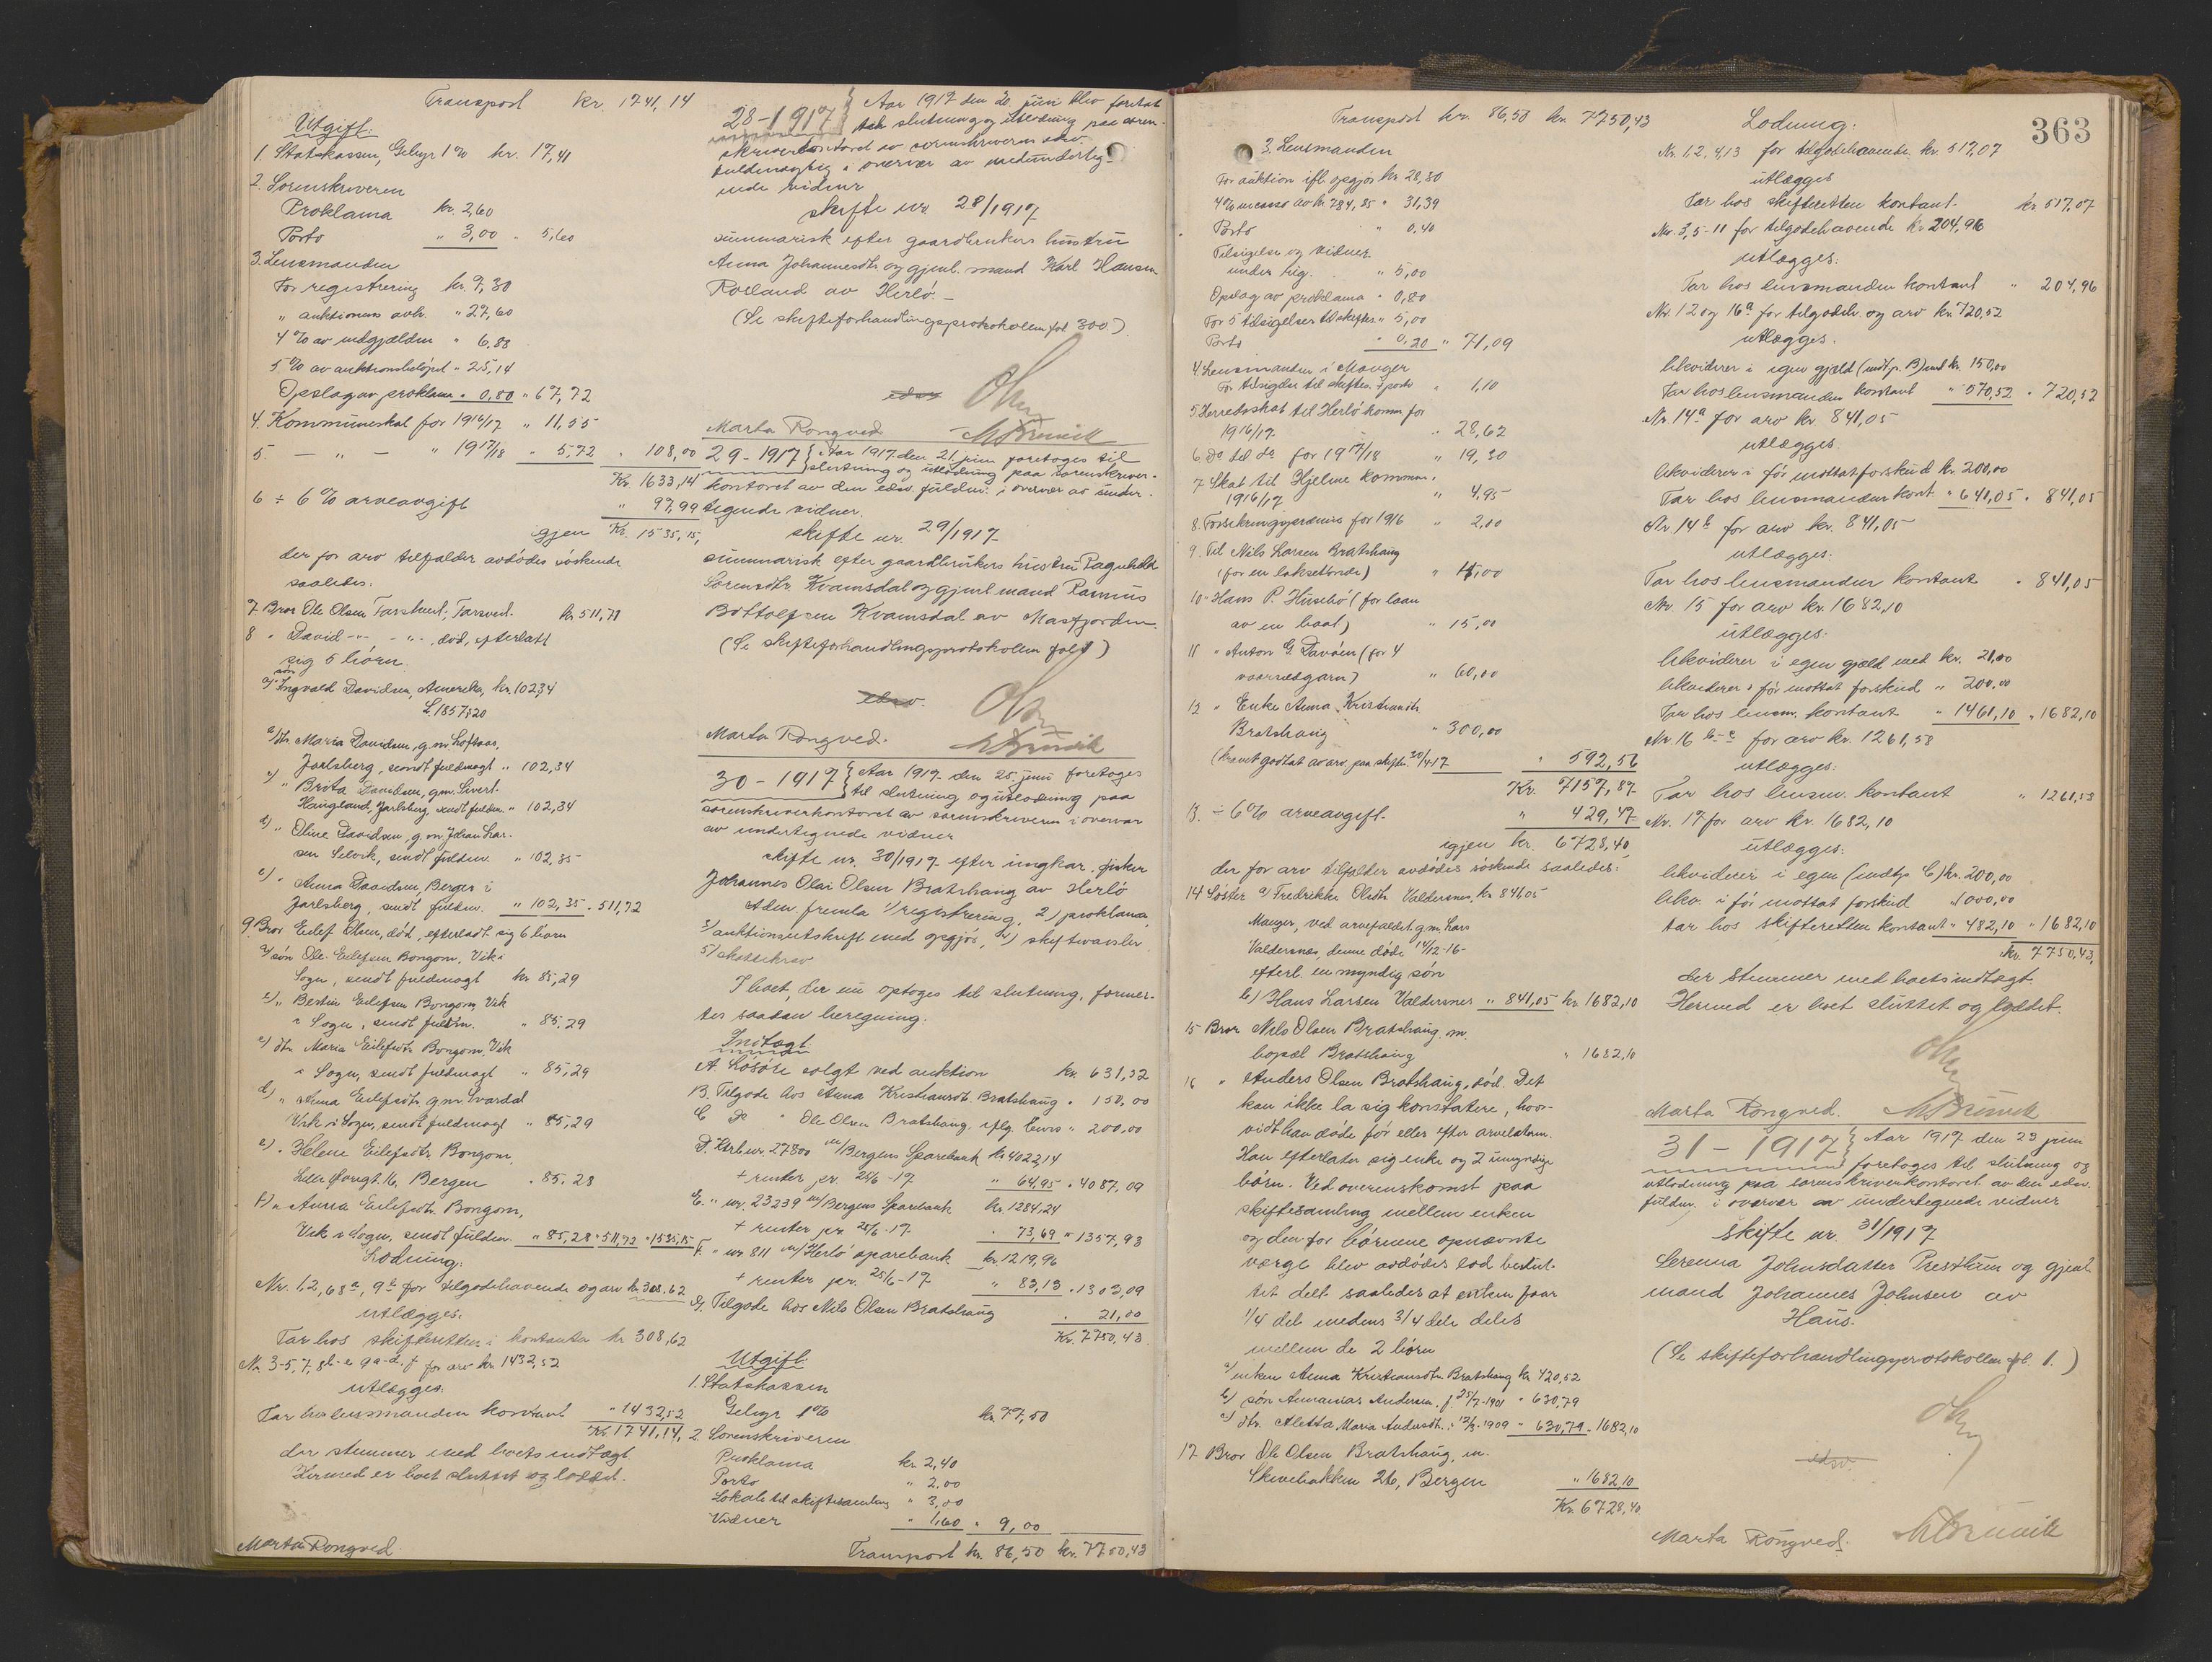 Transport kr. 1741,14
Utgift:
1. Statskassen, Gebyr 1% kr. 17,41
2. Sorenskriveren
Proklama kr. 2,60
Porto " 3,00 " 5,60
3. Lensmanden
For registrering kr. 7,30
" auktionens avh. " 27,60
4% av indgjælden " 6.88
5% av auktionsbeløpet " 25,14
Opslag av proklama " 0,80 " 67,72
4. Kommuneskat for 1916/17 " 11,55
5. — " — " 1917/18 " 5,72 " 108,00
Kr. 1633,14
6 ÷ 6% arveavgift " 97,99
igjen Kr. 1535,15,
der for arv tilfalder avdødes søskende
saaledes:
7. Bror Ole Olsen Kr. 511,71
8 " David -"- -"- død, efterlatt
sig 5 børn.
a) søn Ingvald Davidsen, Amerika, kr. 102,34
L. 1857/20
b) dtr. Maria Davidsen, g.m. Loftaas,
Jarlsberg, sendt fuldmagt " 102,34
c) " Brita Davidsen, gm. Sivert
Haugland, Jarlsberg, sendt fuldm. " 102,34
d) " Oline Davidsen, g.m. Johan Lar-
sen Selvik, sendt fuldm. " 102,35
e) " Anna Davidsen, Berger i
Jarlsberg, sendt fuldm. " 102,35 " 511,72
9. Bror Eilef Olsen, død, efterladt sig 6 barn
a) søn Ole Eilefsen Bongom, Vik i
Sogn, sendt fuldmagt kr. 85,29
b) " Bertin Eilefsen Bongom, Vik
i Sogn, sendt fuldm. " 85,29
c) dtr. Maria Eilefsdtr. Bongom, Vik
i Sogn, sendt fuldmagt " 85,29
d) " Anna Eilefsdtr. g.m. Svardal
Vik i Sogn, sendt fuldmagt " 85,29
e) " Helene Eilefsdtr. Bongom,
16, Bergen " 85.28
f) " Anna Eilefsdtr. Bongom,
Vik i Sogn, sendt fuldm. " 85,28 " 511,72 " 1535,15
Lodning:
Nr. 1,2,6 8a, 9e for tilgodehavende og arv kr 308.62
utlægges:
Tar hos skifteretten i kontanter kr 308,62
Nr. 3-5, 7, 8b-e 9a-d, f for arv kr. 1432,52
utlægges:
Tar hos lensmanden kontant " 1432,52
Kr. 1741,14,
der stemmer med boets indtægt.
Hermed er boet sluttet og loddet.
Marta Rongved.
28-1917 } Aar 1917 den 20. juni blev foretat
til slutning og utlodning paa soren-
skriverkontoret av sorenskriveren edsv.
fuldmægtig i overvær av undertegn-
nede vidner
skifte nr. 28/1917
summarisk efter gaardbrukers hustru
Anna Johannesdtr. og gjenl. mand Karl Hansen
Rolland av Herlø. -
(Se skifteforhandlingsprotokollen fol 300.)
edsv.
Marta Rongved.
29-1917 } Aar 1917 den 21. juni foretoges til
slutning og utlodning paa sorenskriver-
kontoret av den edsv. fuldm. i overvær av under-
tegende vidner.
skifte nr. 29/1917
summarisk efter gaardbrukers hustru Ragnhild
Sorensdtr. Kvamsdal og gjenl. mand Rasmus
Bottolfsen Kvamsdal av Masfjorden.
(Se skifteforhandlingsprotokollen fol 1)
edsv.
Marta Rongved.
30-1917 } Aar 1917 den 25. juni foretoges
til slutning og utlodning paa
sorenskriverkontoret av sorenskriveren i overvær
av undertegnede vidner
skifte nr. 30/1917 efter ungkar, fisker
Johannes Olai Olsen Bratshaug av Herlø
Adm. fremla 1) registrering, 2) proklama
3) auktionsutskrift med opgjør, 4)
5) skattekrav
I boet, der nu optoges til slutning, former-
tes saadan beregning:
Indtægt
A. Løsøre solgt ved auktion kr. 631,32
B. Tilgode hos Anna Kristiansdt. Bratshaug " 150,00
C do " Ole Olsen Bratshaug, iflg. bevis " 200,00
D. Ktrb. nr. 27800 m/Bergens Sparebank kr 4022,14
+ renter pr. 25/6-17 " 64,95 " 4087,09
E. " nr. 23239 m/Bergens Sparebank kr. 1284,24
+ renter pr. 25/6-17. " 73,69 " 1357,93
F. " nr 811 m/Herlø sparebank kr. 1219,96
+ renter pr. 25/6-17 " 83,13 " 1303,09
G. Tilgode hos Nils Olsen Bratshaug " 21,00
Kr. 7750,43
Utgift:
1. Statskassen
Gebyr 1% kr. 77,50
2. Sorenskriveren
Proklama kr. 2,40
Porto " 2,00
Lokale til skiftesamling " 3,00
Vidner " 1,60 " 9,00
Transport kr. 86,50 kr. 7750,43
363
Transport kr. 86,50 kr. 7750,43
3. Lensmanden
For auktion ifl. opgjør kr. 28,30
4% incasso av kr. 784,85 " 31,39
Porto " 0,40
Tilsigelse og vidner
under rig. " 5,00
Opslag av proklama " 0,80
For 5 tilsigelser til skiftes. " 5,00
Porto " 0,20 " 71,09
4. Lensmanden i Manger
For tilsigelse til skiftes. + porto " 1,10
5. Herredsskat til Herlø komm. for
1916/17. " 28,62
6. Do til do for 1917/18 " 19,30
7 Skat til Hjelme Kommun.
1916/17 " 4,95
8. Forsikringspræmie for 1916 " 2,00
9. Til Nils Larsen Bratshaug
(for en laksebunde) " 15,00
10 " Hans P. (for laan
av en baat) " 15,00
11 " Anton G. Davøen (for 4
) " 60,00
12 " Enke Anna Kristiansdtr.
Bratshaug " 300,00
(kravet godtat av arv. paa skiftes. 30/4-17 " 592,56
Kr. 7157,87
13. ÷ 6% arveavgift. " 429,47
igjen kr. 6728,40
der for arv tilfalder avdødes søskende saaledes:
14 Søster a) Fredrikke Olsdtr. Valdersnes, kr 841,05
Manger, ved arvefaldet g.m. Lars
Valdersnes, denne døde 14/12-16-
efterl. en myndig søn
b) Hans Larsen Valdersnes " 841,05 kr. 1682,10
15 Bror Nils Olsen Bratshaug m.
bopæl Bratshaug " 1682,10
16 " Anders Olsen Bratshaug, død. Det
kan ikke la sig konstatere, hvor-
vidt han døde før eller efter arvelateren.
Han efterlater sig enke og 2 umyndige
børn. Ved overenskomst paa
skiftesamling mellem enken
og den for børnene opnævnte
verge blev avdødes lod beslut-
tet delt saaledes at enken faar
1/4 del medens 3/4 dele deles
mellem de 2 børn
a) enken Anna Kristiansdtr. Bratshaug kr 420,52
b) søn Annanias Andersen, f. 25/7-1901 " 630,79
c) dtr. Aletta Maria Andersdt. 1909 - 630,79 " 1682,10
17. Bror Ole Olsen Bratshaug, m.
Skivebakken 26, Bergen " 1682,10
Kr. 6728,40
Lodning:
Nr. 1,2,4,13 for tilgodehavende kr. 517,07
utlægges
Tar hos skifteretten kontant. kr. 517,07
Nr. 3, 5-11 for tilgodehavende kr 204,96
utlægges:
Tar hos lensmanden kontant " 204,96
Nr. 12 og 16a for tilgodeh. og arv kr. 720,52
utlægges:
likviderer i egen gjæld (indtp. B) med kr. 150,00
Tar hos lensmanden kontant " 570,52 " 720,52
Nr. 14a for arv kr. 841,05
utlægges
likviderer i før mottat forskud kr. 200,00
Tar hos lensmanden kont. " 641,05 " 841,05
Nr. 14b for arv kr. 841,05
utlægges:
Tar hos lensmanden kontant " 841,05
Nr. 15 for arv kr. 1682,10
utlægges:
likviderer i egen gjæld med kr. 21,00
likviderer i før mottat forskud " 200,00
Tar hos lensm. kontant " 1461,10 " 1682,10
Nr. 16 b-c for arv kr. 1261,58
utlægges:
Tar hos lensm. kontant " 1261,58
Nr. 17 for arv kr. 1682,10
utlægges:
likviderer i egen (indtp C) kr. 200,00
likv. i før mottat forskud 1000,00
tar hos skifteretten kontant " 482,10 " 1682,10
Kr. 7750,43,
der stemmer med boets indtægt.
Hermed er boet sluttet og loddet.
Marta Rongved.
31-1917 } Aar 1917 den 29 juni
foretoges til slutning og
utlodning paa sorenskriverkontoret av den edsv.
fuldm. i overvær av undertegnede vidner
skifte nr. 31/1917
Serenna Johnsdatter Prestun og gjenl.
mand Johannes Johnsen av
Haus.
(Se skifteforhandlingsprotokollen fol. 1.)
edsv.
Marta Rongved.